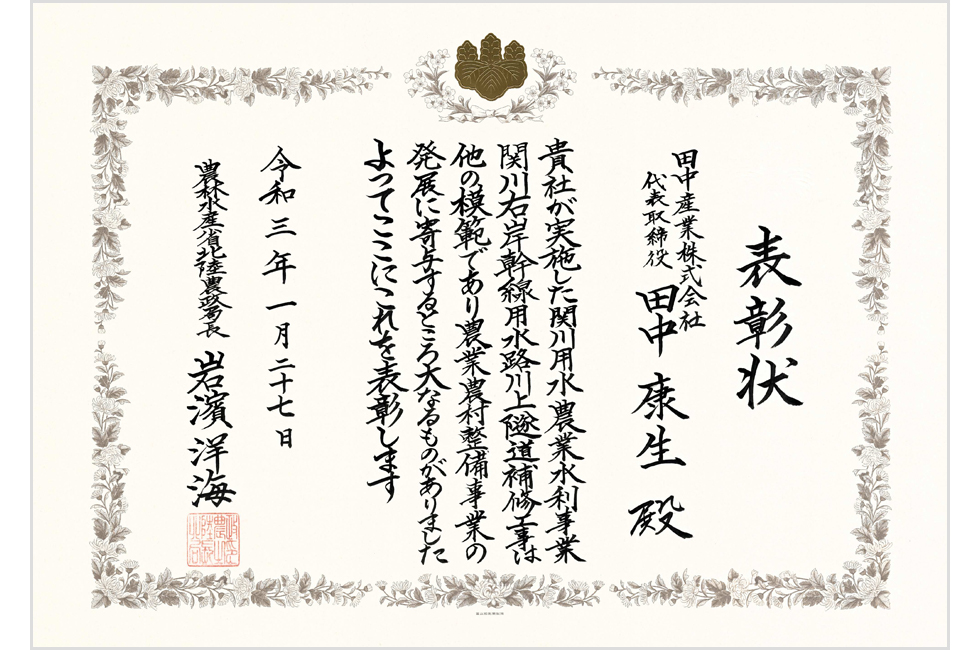 表彰状
田中産業株式会社
代表取締役 田中 康生 殿
貴社が実施した関川用水農業水利事業
関川右岸幹線用水路川上隧道補修工事は
他の模範であり農業農村整備事業の
発展に寄与するところ大なるものがありました
よってここにこれを表彰します
令和三年一月二十七日
農林水産省北陸農政局長 岩濱洋海